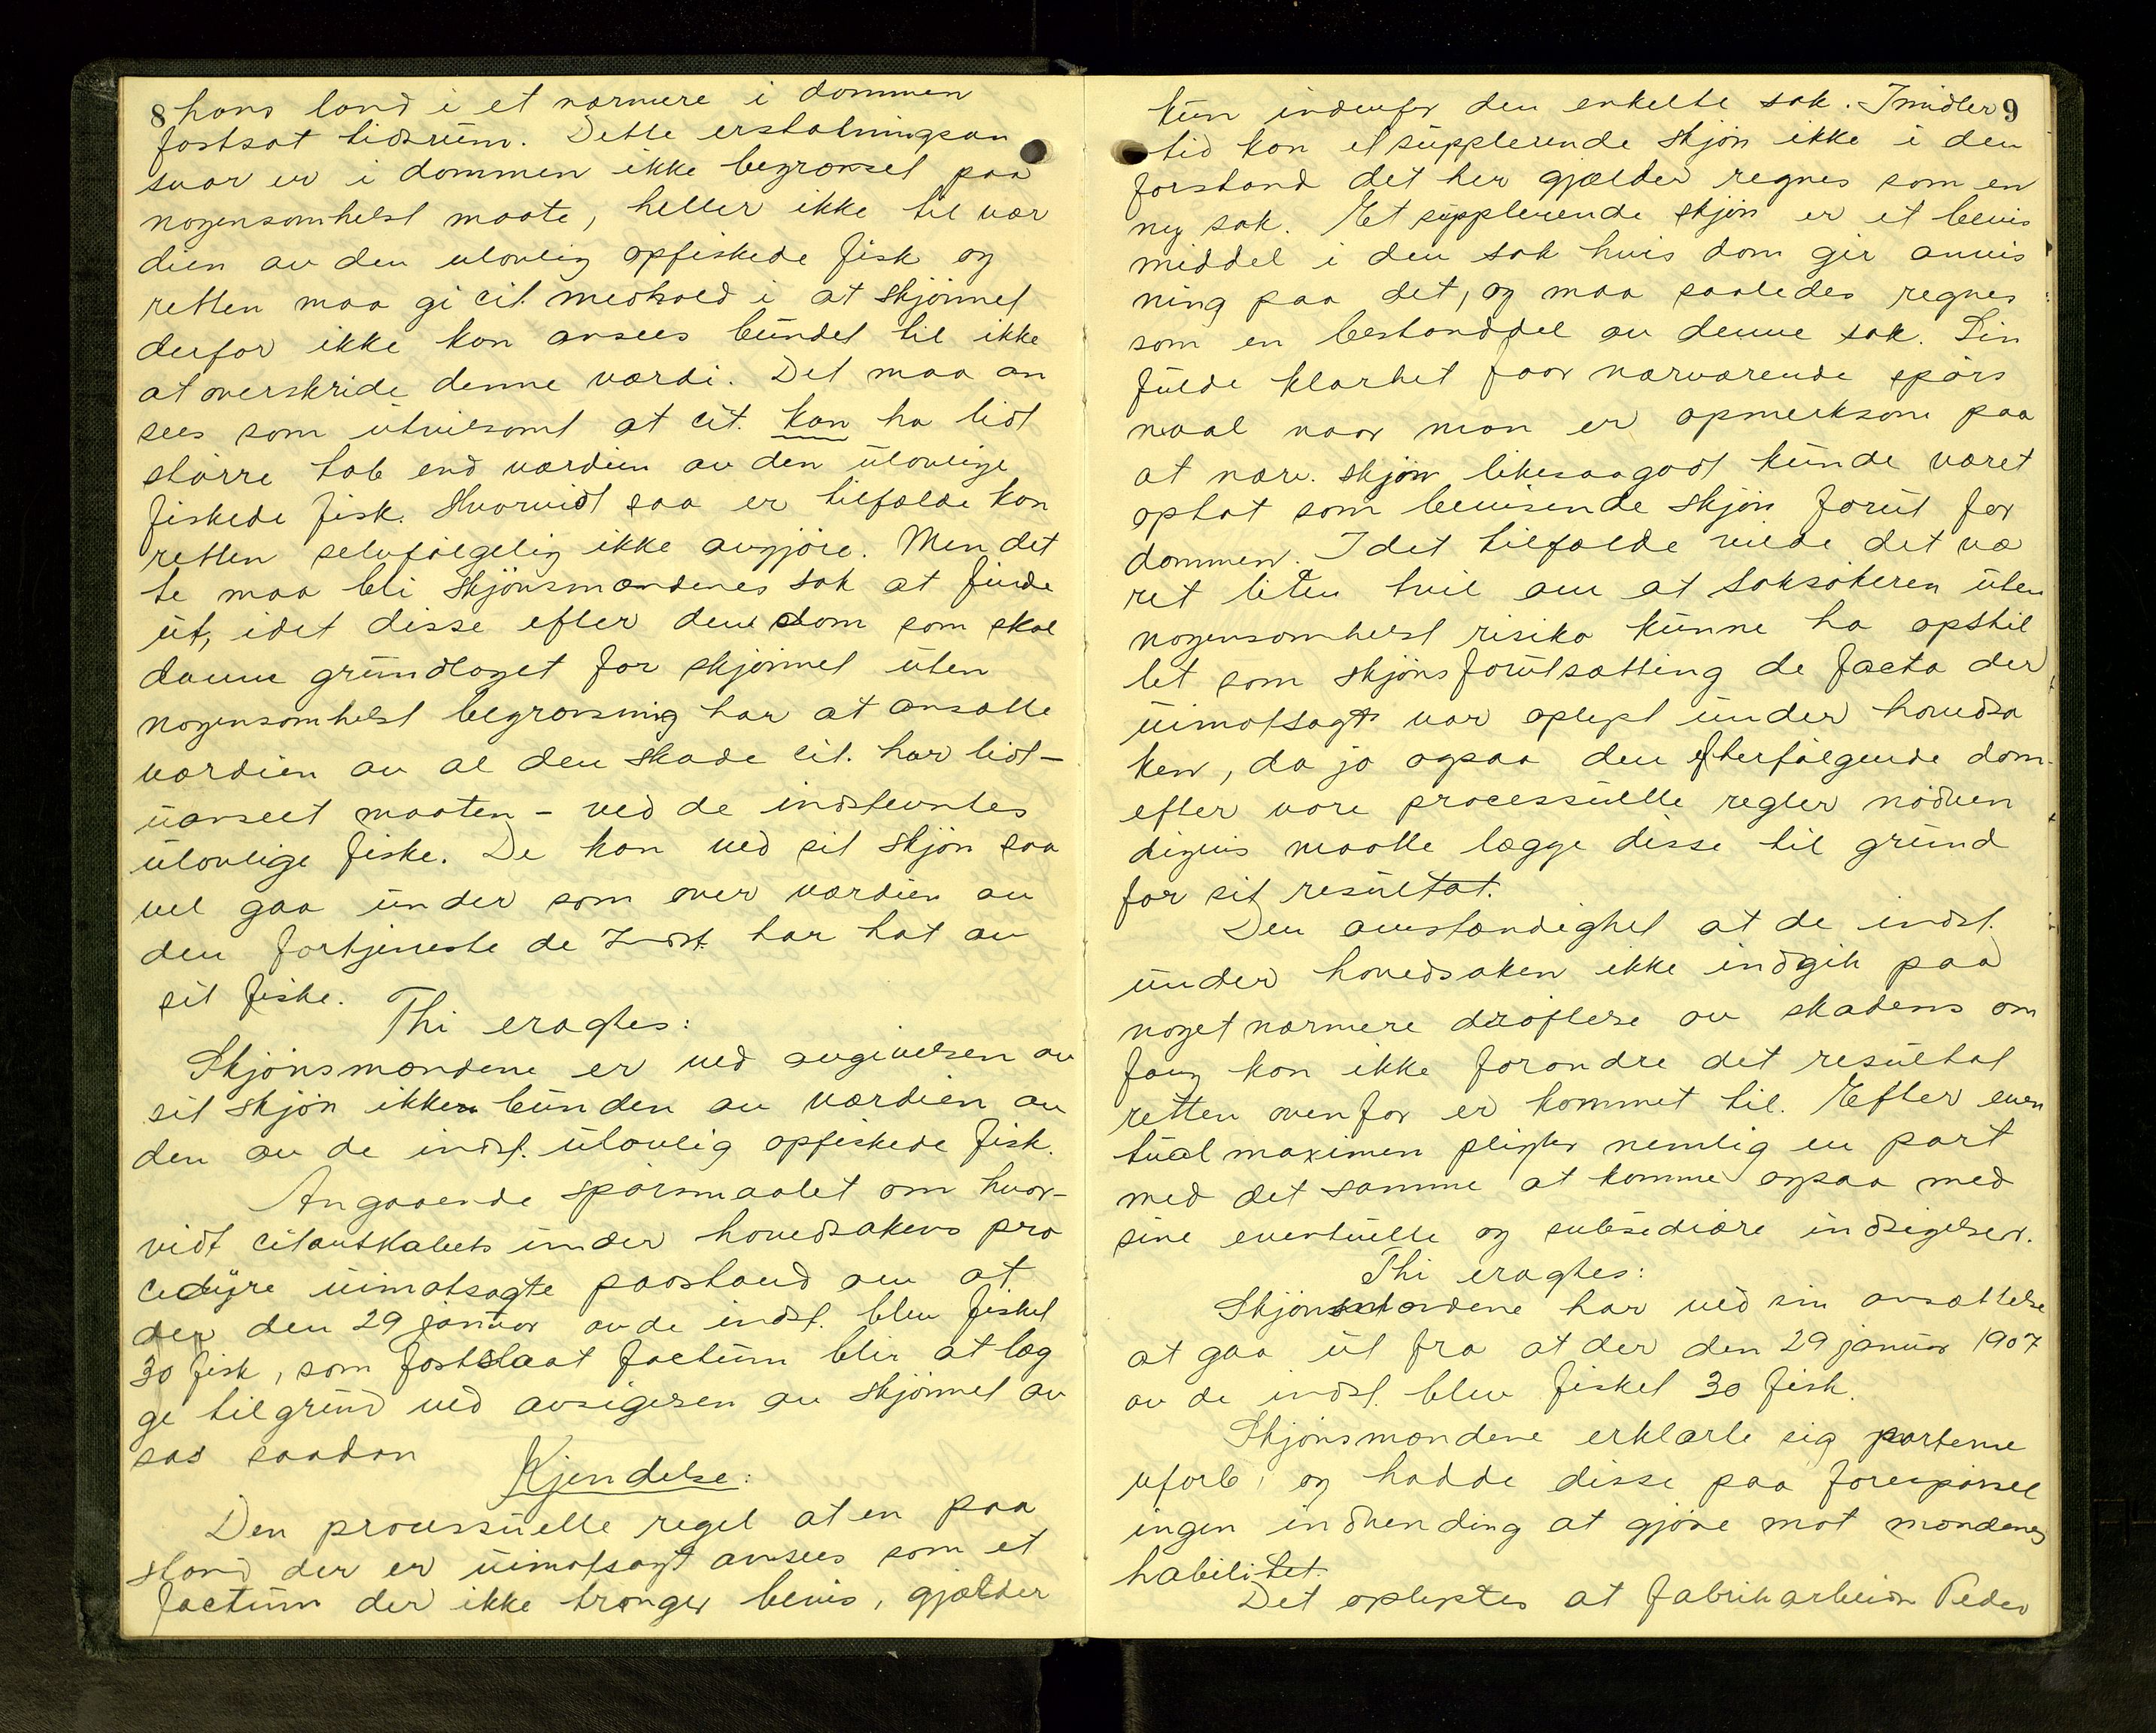 8 hans land i et nærmere i dommen
fastsat tidsrum. Dette erstatningsan
svar er i dommen ikke begrænset paa
nogensomhelst maate, heller ikke til vær
dien av den ulovlig opfiskede fisk og
retten maa gi cit. medhold i at skjønnet
derfor ikke kan ansees bundet til ikke
at overskride denne værdi. Det maa an
sees som utvilsomt at cit. kan ha lidt
større tab end værdien av den ulovlige
fiskede fisk. Hvorvidt saa er tilfælde kan
retten selvfølgelig ikke avgjøre. Men det
te maa bli skjønsmændenes sak at finde
ut, idet disse efter den dom som skal
danne grundlaget for skjønnet uten
nogensomhelst begrænsning har at ansætte
værdien av al den skade cit. har lidt –
uanseet maaten – ved de indstevntes
ulovlige fiske. De kan ved sit skjøn saa
vel gaa under som over værdien av
den fortjeneste de Indst. har hat av
sit fiske.
Thi eragtes:
Skjønsmændene er ved avgivelsen av
sit skjøn ikke bunden av værdien av
den av de indst. ulovlig opfiskede fisk.
Angaaende spørsmaalet om hvor-
vidt citantskabets under hovedsakens pro
cedyre uimotsagte paastand om at
der den 29 januar av de indst. blev fisket
30 fisk, som fastslaat factum blir at læg
ge til grund ved avsigesen av skjønnet av
sas saadan
Kjendelse:
Den processuelle regel at en paa
stand der er uimotsagt ansees som et
factum der ikke trænger bevis, gjælder
kun indenfor den enkelte sak. Imidler 9
tid kan et supplerende skjøn ikke i den
forstand det her gjælder regnes som en
ny sak. Et supplerende skjøn er et bevis
middel i den sak hvis dom gir anvis
ning paa det, og maa saaledes regnes
som en bestanddel av denne sak. Sin
fulde klarhet faar nærværende spørs
maal naar man er opmerksom paa
at nærv. skjøn likesaagodt kunde været
optat som bevisende skjøn forut for
dommen. I det tilfælde vilde det væ
ret liten tvil om at saksøkeren uten
nogensomhelst risiko kunne ha opstil
let som skjønsforutsætting de facta der
uimotsagt var oplyst under hovedsa
ken, da jo ogsaa den efterfølgende dom
efter vore processuelle regler nødven
digvis maatte lægge disse til grund
for sit resultat.
Den omstændighet at de indst.
under hovedsaken ikke indgik paa
noget nærmere drøftelse av skadens om
fang kan ikke forandre det resultat
retten ovenfor er kommet til. Efter even
tualmaximen pligter nemlig en part
med det samme at komme ogsaa med
sine eventuelle og subsidiære indsigelser.
Thi eragtes:
Skjønsmændene har ved sin ansættelse
at gaa ut fra at der den 29 januar 1907
av de indst. blev fisket 30 fisk.
Skjønsmændene erklærte sig parterne
uforb. og hadde disse paa forespørsel
ingen indvending at gjøre mot mændenes
habilitet.
Det oplystes at fabrikarbeider Peder